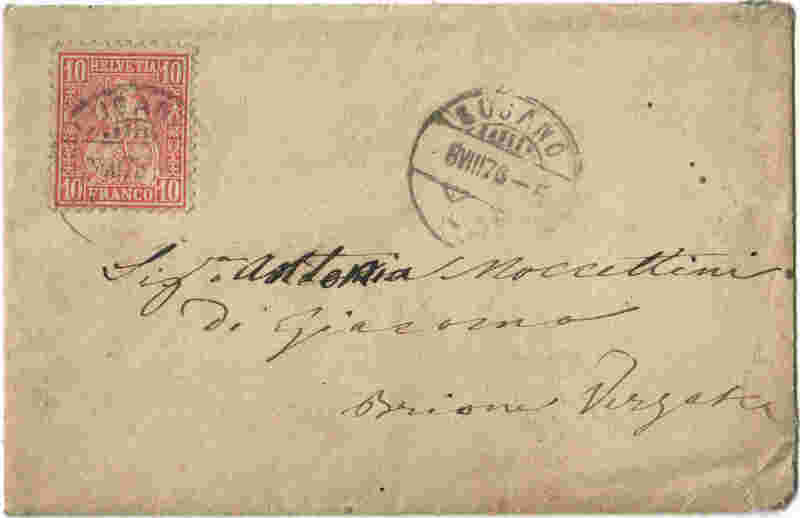 10 HELVETIA 10
10 FRANCO 10
LUGANO
8VIII76-5
Sig.ra Antonia Moccettini
di Giacomo
Brione